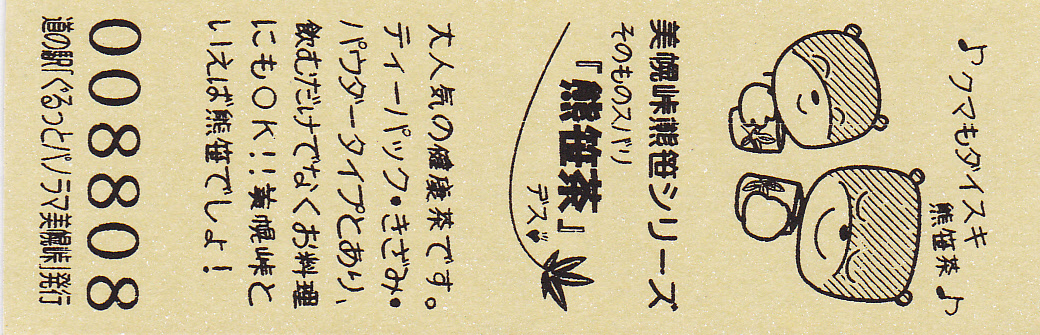 ♪クマもダイスキ
熊笹茶♪
美幌峠熊笹シリーズ
そのものズバリ
『熊笹茶』
デス♥
大人気の健康茶です。
ティーパック・きざみ・
パウダータイプとあり、
飲むだけでなくお料理
にもOK!!美幌峠と
いえば熊笹でしょ!
008808
道の駅「ぐるっとパノラマ美幌峠」発行